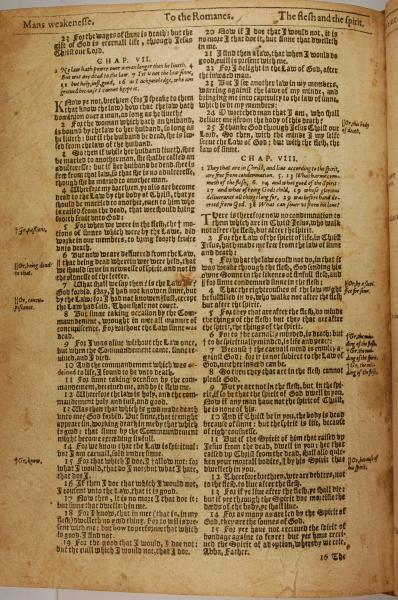 Mans weakenesse.
To the Romanes.
The flesh and the spirit.
23 For the wages of sinne is death: but the
gift of God is eternall life, through Jesus
Christ our Lord.
CHAP. VII.
1 No law hath power over a man longer then he liveth. 4
But wee are dead to the law. 7 Yet is not the law sinne,
12 but holy, just, good, 16 as I acknowledge, who am
grieved because I cannot keepe it.
KNow ye not, brethren (for I speake to them
that know the law) how that the law hath
dominion over a man, as long as he liveth?
2 For the woman which hath an husband,
is bound by the law to her husband, so long as
he liveth: but if the husband be dead, she is loo-
sed from the law of her husband.
3 So then if while her husband liveth, shee
be married to another man, she shalbe called an
adulteresse: but if her husband be dead, she is
free from that law, so that she is no adulteresse,
though she be married to another man.
4 Wherefore my brethren, ye also are become
dead to the Law by the body of Christ, that ye
should be married to another, even to him who
is raised from the dead, that we should bring
foorth fruit unto God.
5 For when wee were in the flesh, the † mo-
tions of sinnes which were by the Law, did
worke in our members, to bring foorth fruite
unto death.
6 But now we are delivered from the Law,
|| that being dead wherein we were held, that
we should serve in newnesse of spirit, and not in
the oldnesse of the letter.
7 What shall we say then? is the Law sinne?
God forbid. Nay, I had not knowen sinne, but
by the Law: for I had not knowen || lust, except
the Law had said, Thou shalt not covet.
8 But sinne taking occasion by the Com-
mandement, wrought in me all manner of
concupiscence. For without the Law sinne was
dead.
9 For I was alive without the Law once,
but when the Commandement came, sinne re-
vived, and I died.
10 And the commandement which was or-
deined to life, I found to be unto death.
11 For sinne taking occasion by the com-
mandement, deceived me, and by it slew me.
12 Wherefore the law is holy, and the
commandement holy and iust, and good.
13 Was then that which is good made death
unto me? God forbid. But sinne, that it might
appeare sin, working death in me by that which
is good: that sinne by the Commandement
might become exceeding sinfull.
14 For we know that the Law is spirituall:
but I am carnall, sold under sinne.
15 For that which I doe, I † allow not: for
what I would, that do I not, but what I hate,
that doe I.
16 If then I doe that which I would not,
I consent unto the Law, that it is good.
17 Now then, it is no more I that doe it:
but sinne that dwelleth in me.
18 For I know, that in mee (that is, in my
flesh) dwelleth no good thing. For to will is pre-
sent with me: but how to performe that which
is good, I find not.
19 For the good that I would, I doe not:
but the evill which I would not, that I doe.
† Gr. passions.
|| Or, being dead
to that.
|| Or, concu-
piscence.
† Gr. know.
20 Now if I doe that I would not, it is
no more I that doe it, but sinne that dwelleth
in me.
21 I find then a law, that when I would do
good, evill is present with me.
22 For I delight in the Law of God, after
the inward man.
23 But I see another law in my members,
warring against the lawe of my minde, and
bringing me into captivity to the law of sinne,
which is in my members.
24 O wretched man that I am, who shall
deliver me from || the body of this death?
25 I thanke God through Jesus Christ our
Lord. So then, with the minde I my selfe
serve the Law of God: but with the flesh, the
law of sinne.
CHAP. VIII.
1 They that are in Christ, and live according to the spirit,
are free from condemnation. 5. 13 What harme commeth
of the flesh, 6. 14 and what good of the spirit:
17 and what of being Gods child, 19 whose glorious
deliverance all things long for, 29 was before hand de-
creed from God. 38 What can sever us from his love?
THere is therefore now no condemnation to
them which are in Christ Jesus, who walk
not after the flesh, but after the spirit.
2 For the Law of the spirit of life, in Christ
Jesus, hath made me free from the law of sinne
and death:
3 For what the law could not do, in that it
was weake through the flesh, God sending his
owne Sonne in the likenes of sinfull flesh, and
|| for sinne condemned sinne in the flesh:
4 That the righteousnes of the law might
be fulfilled in us, who walke not after the flesh
but after the spirit.
5 For they that are after the flesh, do minde
the things of the flesh: but they that are after
the spirit, the things of the spirit.
6 For † to be carnally minded, is death: but
† to be spiritually minded, is life and peace:
7 Because † the carnall minde is enmity a-
gainst God: for it is not subject to the Law of
God, neither indeed can be.
8 So then they that are in the flesh cannot
please God.
9 But ye are not in the flesh, but in the spi-
rit, if so be that the spirit of God dwell in you.
Now if any man have not the spirit of Christ,
he is none of his.
10 And if Christ be in you, the body is dead
because of sinne: but the spirit is life, because
of righteousnesse.
11 But if the Spirit of him that raised up
Jesus from the dead, dwell in you: he that
raised up Christ from the dead, shall also quic-
ken your mortall bodies, || by his Spirit that
dwelleth in you.
12 Therefore brethren, wee are debters, not
to the flesh, to live after the flesh.
13 For if ye live after the flesh, ye shall die:
but if ye through the Spirit doe mortifie the
deeds of the body, ye shall live.
14 For as many as are led by the Spirit of
God, they are the sonnes of God.
15 For yee have not received the spirit of
bondage againe to feare: but yee have recei-
ved the Spirit of adoption, whereby we crie,
Abba, Father.
16 The
|| Or, this body
of death.
|| Or, by a sacri-
fice for sinne.
† Gr. the min-
ding of the flesh.
† Gr. the min-
ding of the spirit.
† Gr. the min-
ding of the flesh.
|| Or, because of
his spirit.